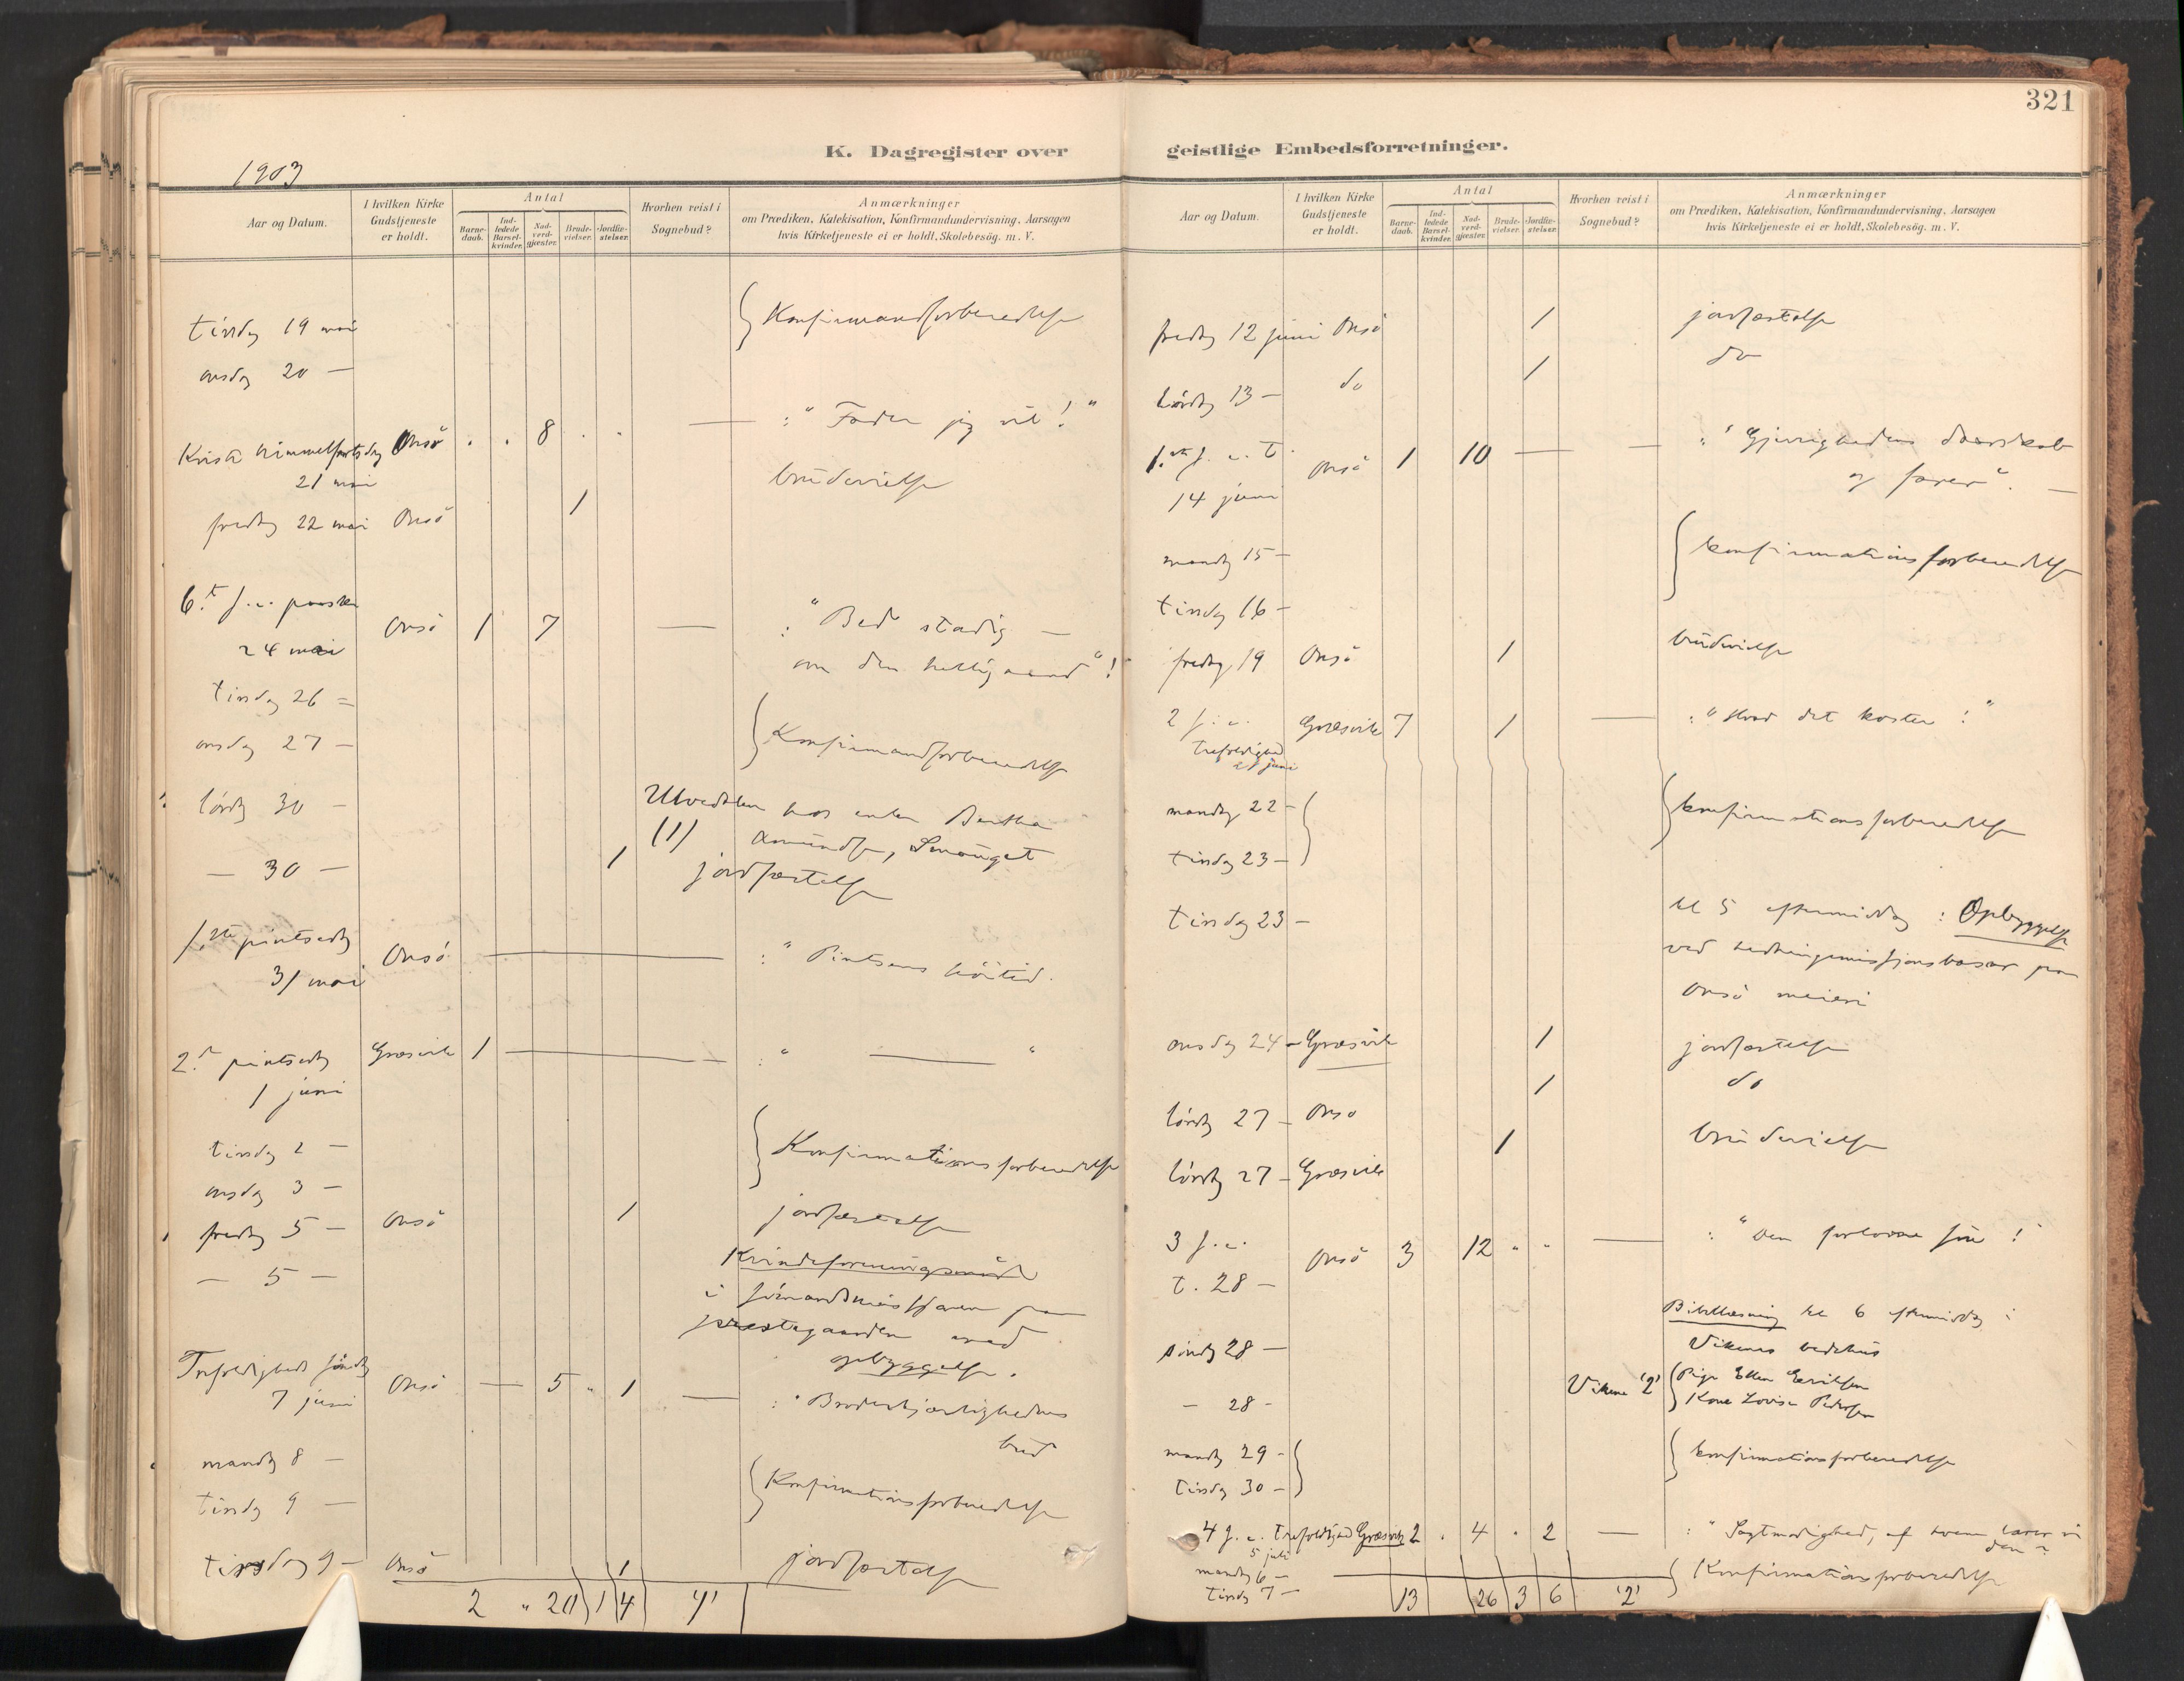 321
K. Dagregister over
geistlige Embedsforretninger.
1903
Aar og Datum.
I hvilken Kirke
Gudstjeneste
er holdt.
Antal
Barne-
daab.
Ind-
ledede
Barsel-
kvinder.
Nad-
verd-
gjæster.
Brude-
vielser.
Jordfæ-
stelser.
Hvorhen reist i
Sognebud?
Anmærkninger
om Prædiken, Katekisation, Konfirmandundervisning, Aarsagen
hvis Kirketjeneste ei er holdt, Skolebesøg. m. V.
tirsdag 19 mai
Konfirmandforberedelse
onsdag 20 —
Kristi himmelfartsdag Onsö . . 8 . . — : " Fader jeg vil ! "
21 mai
fredag 22 mai Onsö 1 brudevielse
6.t s. e. paaske
24 mai Onsö 1 7 — : " Bed stadig —
om den helligaand " !
tirsdag 26 =
onsdag 27 — Konfirmandforberedelse
lördag 30 —
hos enken Bertha
(1) Amundsen,
— 30 — 1 jordfæstelse
1.ste pintsedag
31 mai Onsö — : " Pintsens höitid.
2.d pintsedag Græsvik 1 — : " — "
1 juni
tirsdag 2 —
Konfirmationsforberedelse
onsdag 3 —
fredag 5 — Onsö 1 jordfæstelse
— 5 — Kvindeforeningsmöde
i sömandsmissionen paa
prestegaarden med
opbyggelse.
Trefoldigheds söndag
7 juni Onsö — 5 " 1 — : " Broderkjærlighedens
bud
mandag 8 —
Konfirmationsforberedelse
tirsdag 9 —
tirsdag 9 — Onsö 1 jordfæstelse
2 " 20 1 4 "1"
Aar og Datum.
I hvilken Kirke
Gudstjeneste
er holdt.
Antal
Barne-
daab.
Ind-
ledede
Barsel-
kvinder.
Nad-
verd-
gjæster.
Brude-
vielser.
Jordfæ-
stelser.
Hvorhen reist i
Sognebud?
Anmærkninger
om Prædiken, Katekisation, Konfirmandundervisning, Aarsagen
hvis Kirketjeneste ei er holdt, Skolebesøg. m. V.
fredag 12 juni Onsö 1 jordfæstelse
lördag 13 — do 1 do
1.ste s. e. t.
14 juni Onsö 1 10 — — : " Gjerrighedens daarskab
og farer ". —
mandag 15 —
konfirmationsforberedelse
tirsdag 16 —
fredag 19 Onsö 1 brudevielse
2 s. e. Græsvik 7 1 — : " Hvad det koster ! "
trefoldighed
21 juni
mandag 22 —
konfirmationsforberedelse
tirsdag 23 —
tirsdag 23 — kl 5 eftermiddag : Opbyggelse
ved hedningemissionsbasar paa
Onsö meieri
onsdag 24 — Græsvik 1 jordfæstelse
lördag 27 — Onsö 1 do
lördag 27 — Græsvik 1 brudevielse
3 s. e.
t. 28 — Onsö 3 12 " " — : " Den forlorne sön !
söndag 28 — Bibellæsning kl 6 eftermiddag i
Vikenes bedehus
- 28 - Vikene '2' Pige Ellen Eriksen
Kone Lovise Pedersen
mandag 29 -
konfirmationsforberedelse
tirsdag 30 —
4 s. e. trefoldighed Græsvik 2 . 4 . 2 — : " Sagtmodighed, af hvem lærer vi
den ?
5 juli
mandag 6 —
Konfirmationsforberedelse
tirsdag 7 —
13 26 3 6 '2'